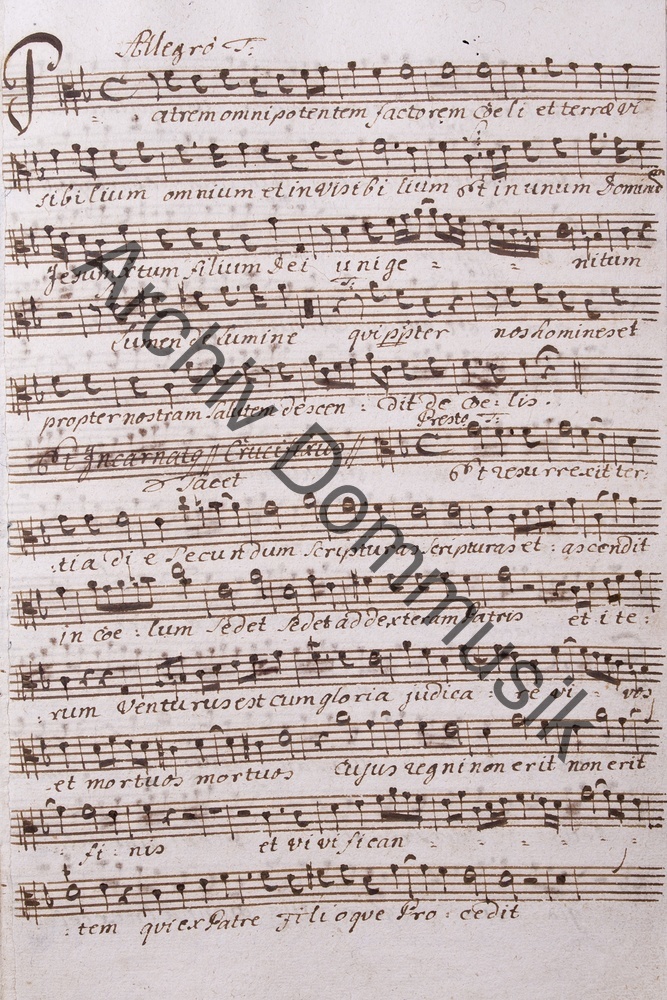 Allegro T:
Patrem omnipotentem factorem Coeli et terræ vi
sibilium omnium et invisibi lium Et in unum Dominũ
Jesum Xtum filium Dei unige - - - nitum
T:
Lumen de Lumine qui ppter nos homines et
propter nostram salutem descen : dit de Coe : lis .
Presto T:
Et Incarnatq // Crucifixus //
Tacet
Et resurrexit ter:
:tia di e Secundum Scripturas Scripturas et : ascendit
in coe : lum Sedet Sedet ad dexteram Patris et ite :
: rum Venturus est cum gloria judica : re vi : vos
et mortuos mortuos Cujus regni non erit non erit
fi : nis et vivifican - - - - -
: tem qui ex Patre Filioque Pro : cedit
Archiv Dommusik